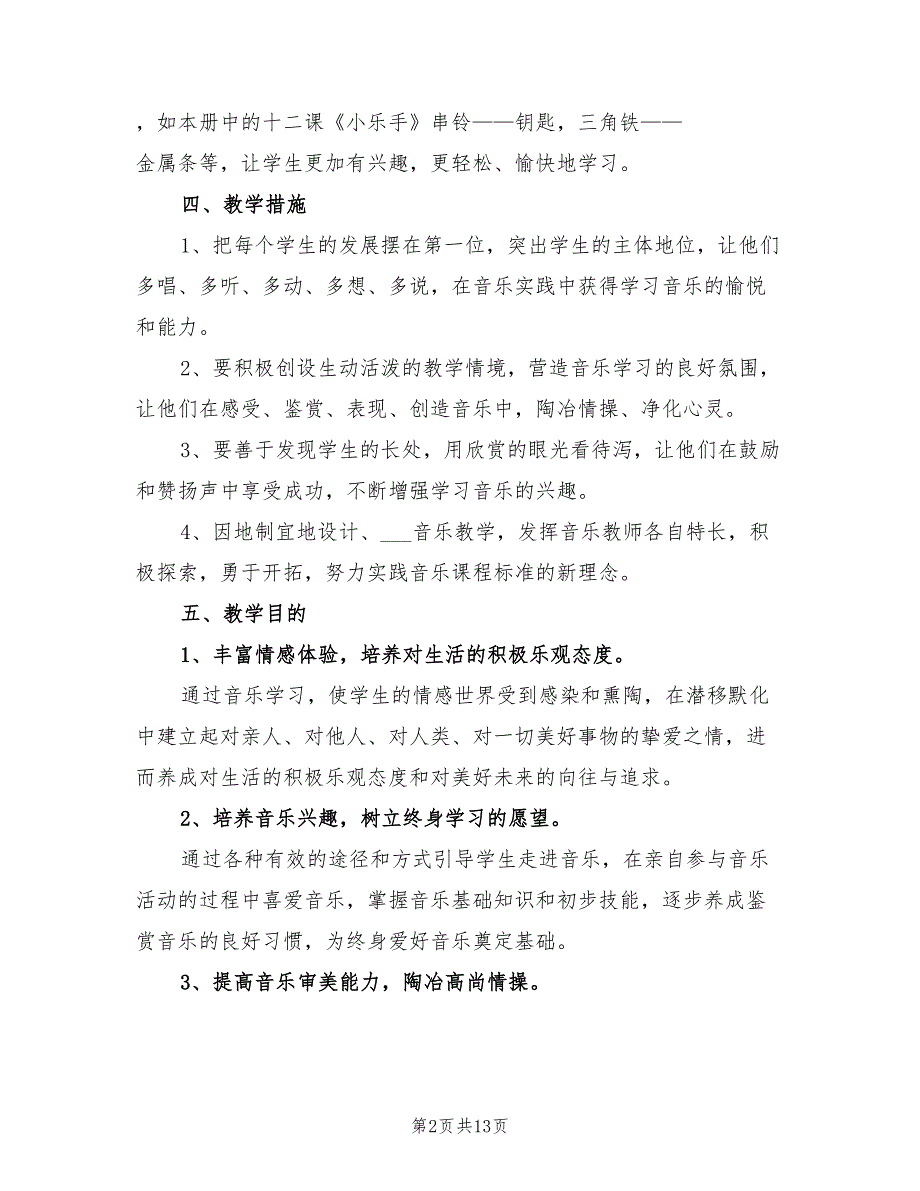 ，如本册中的十二课《小乐手》串铃——钥匙，三角铁——
金属条等，让学生更加有兴趣，更轻松、愉快地学习。
四、教学措施
1、把每个学生的发展摆在第一位，突出学生的主体地位，让他们
多唱、多听、多动、多想、多说，在音乐实践中获得学习音乐的愉悦
和能力。
2、要积极创设生动活泼的教学情境，营造音乐学习的良好氛围，
让他们在感受、鉴赏、表现、创造音乐中，陶冶情操、净化心灵。
3、要善于发现学生的长处，用欣赏的眼光看待泻，让他们在鼓励
和赞扬声中享受成功，不断增强学习音乐的兴趣。
4、因地制宜地设计、___音乐教学，发挥音乐教师各自特长，积
极探索，勇于开拓，努力实践音乐课程标准的新理念。
五、教学目的
1、丰富情感体验，培养对生活的积极乐观态度。
通过音乐学习，使学生的情感世界受到感染和熏陶，在潜移默化
中建立起对亲人、对他人、对人类、对一切美好事物的挚爱之情，进
而养成对生活的积极乐观态度和对美好未来的向往与追求。
2、培养音乐兴趣，树立终身学习的愿望。
通过各种有效的途径和方式引导学生走进音乐，在亲自参与音乐
活动的过程中喜爱音乐，掌握音乐基础知识和初步技能，逐步养成鉴
赏音乐的良好习惯，为终身爱好音乐奠定基础。
3、提高音乐审美能力，陶冶高尚情操。
第2页共13页